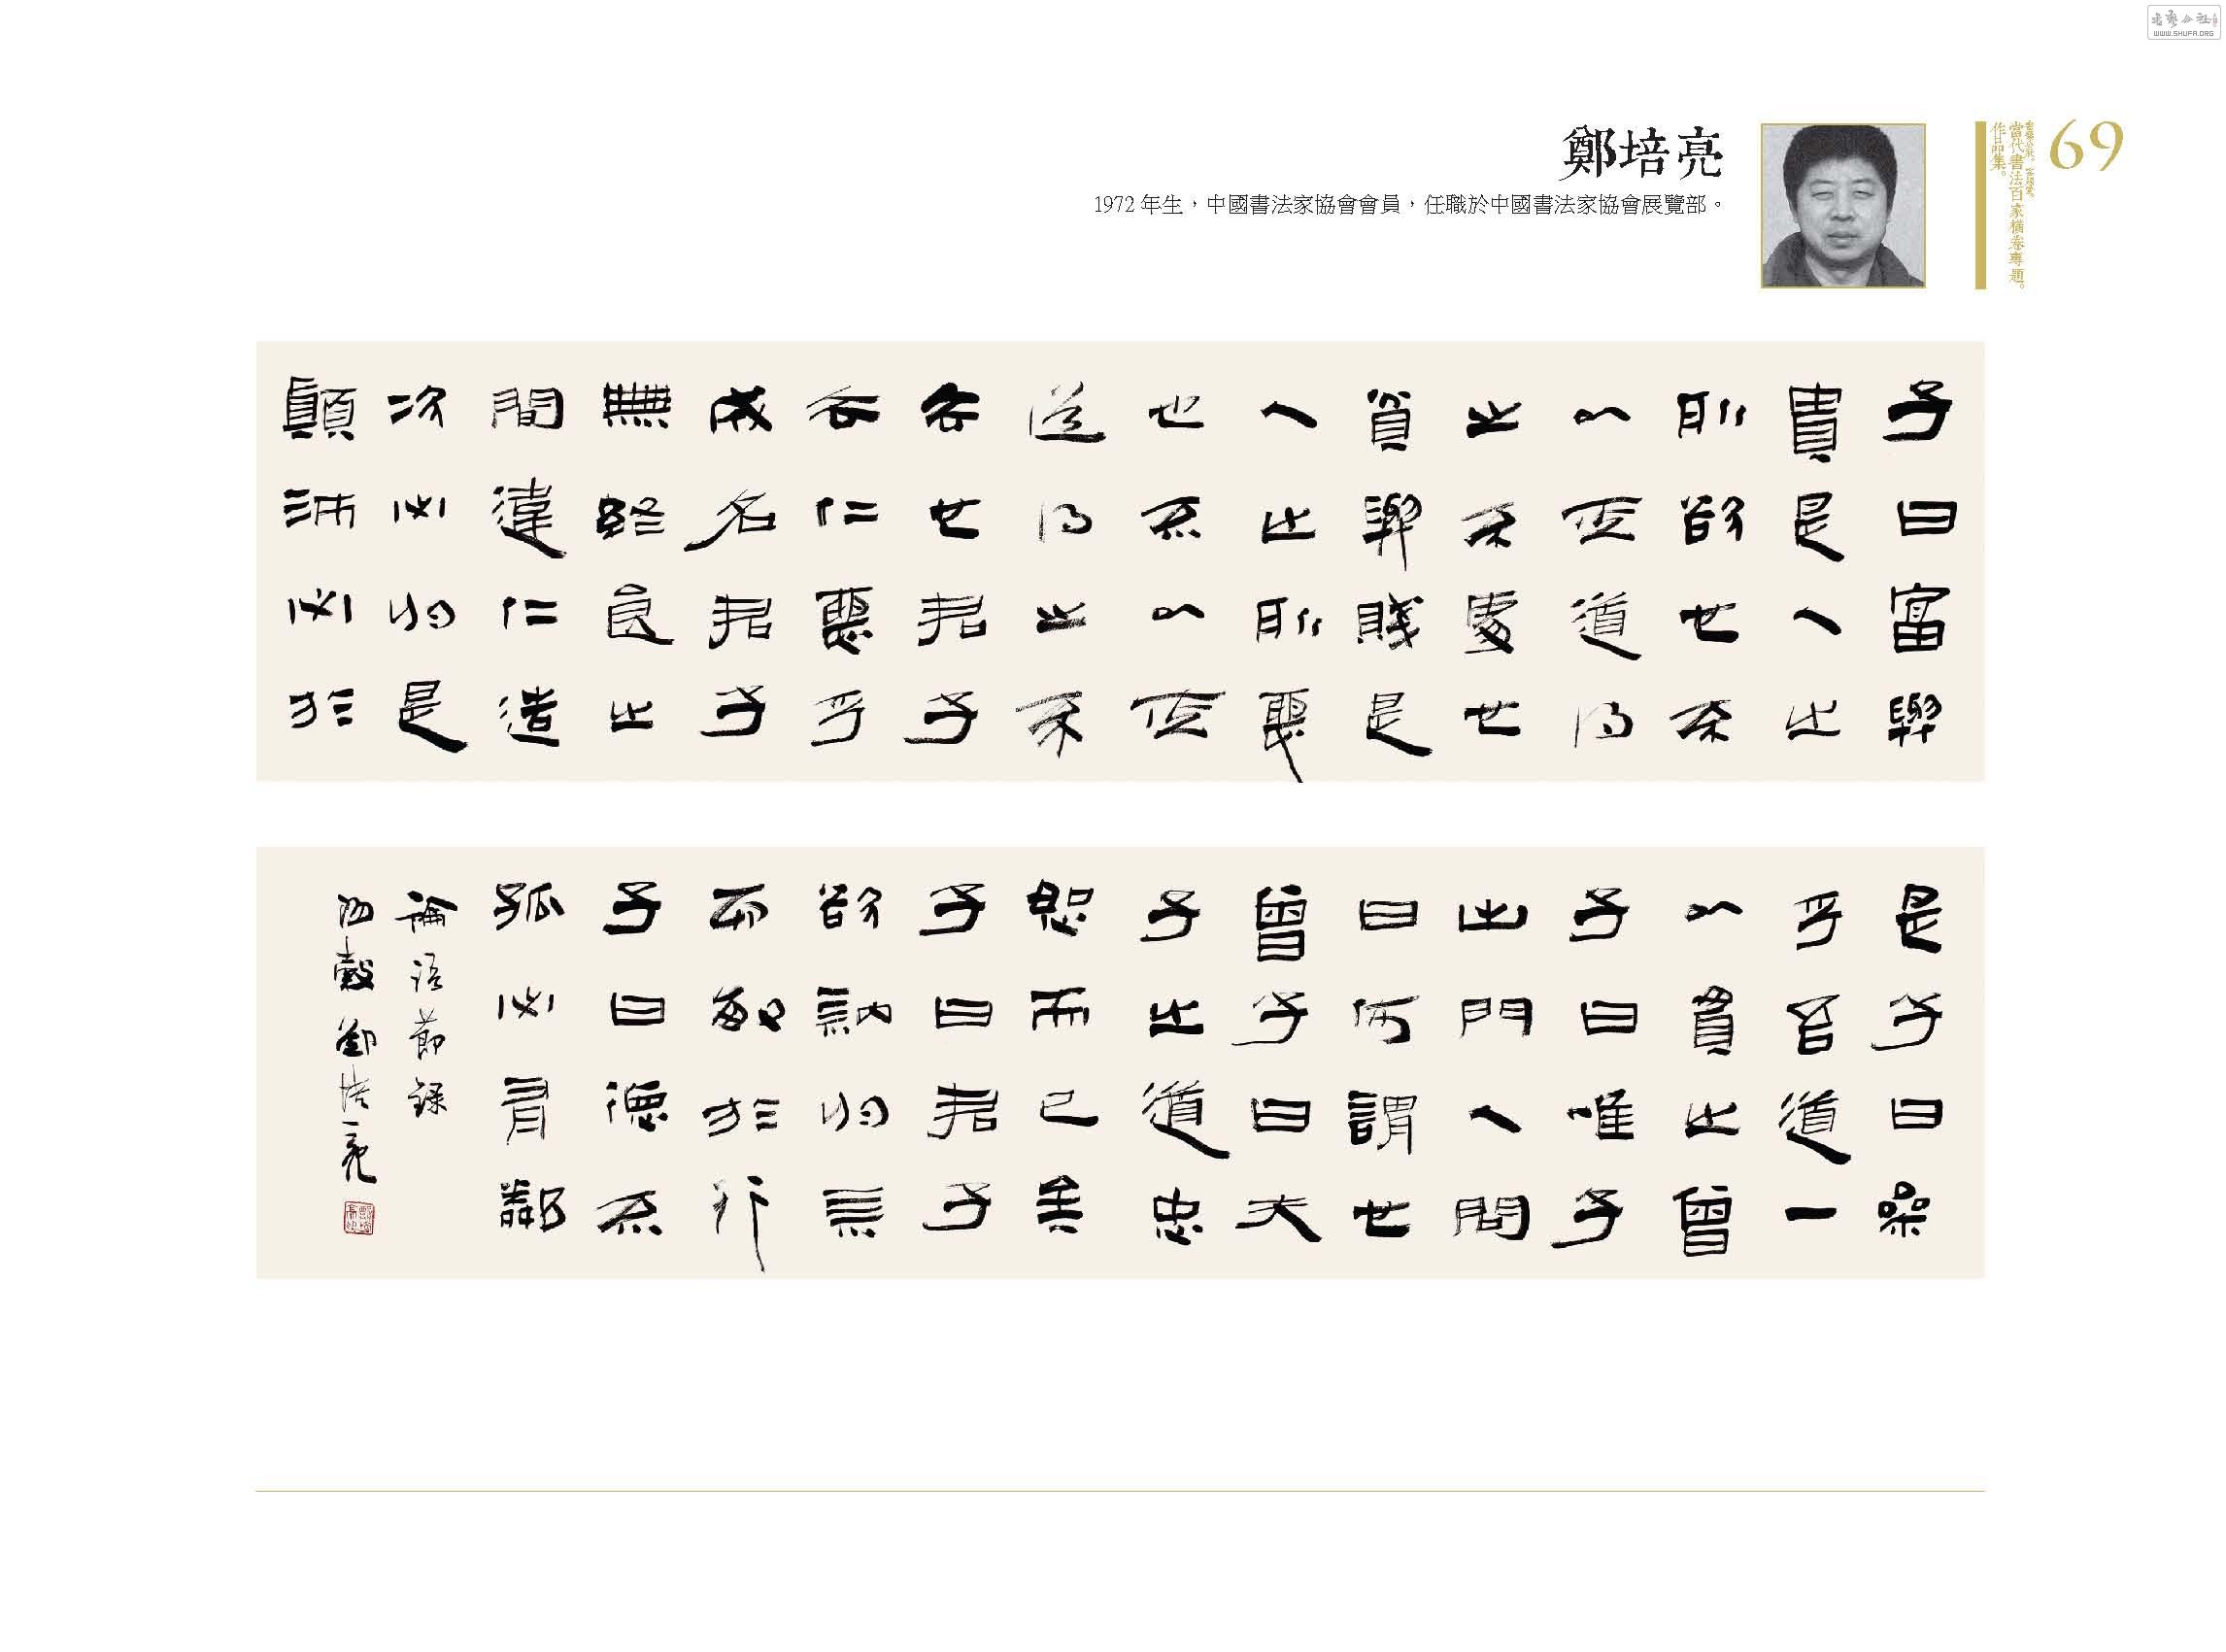 書藝公社
WWW.SHUFA.ORG
69
當代書法百家橫卷專題。
作品集。
鄭培亮
1972 年生，中國書法家協會會員，任職於中國書法家協會展覽部。
子曰富與
貴是人之
所欲也不
以其道得
之不處也
貧與賤是
人之所惡
也不以其
道得之不
去也君子
去仁惡乎
成名君子
無終食之
間違仁造
次必於是
顛沛必於
是子曰參
乎吾道一
以貫之曾
子曰唯子
出門人問
曰何謂也
曾子曰夫
子之道忠
恕而已矣
子曰君子
欲訥於言
而敏於行
子曰德不
孤必有鄰
論語節錄
陽穀鄭培亮